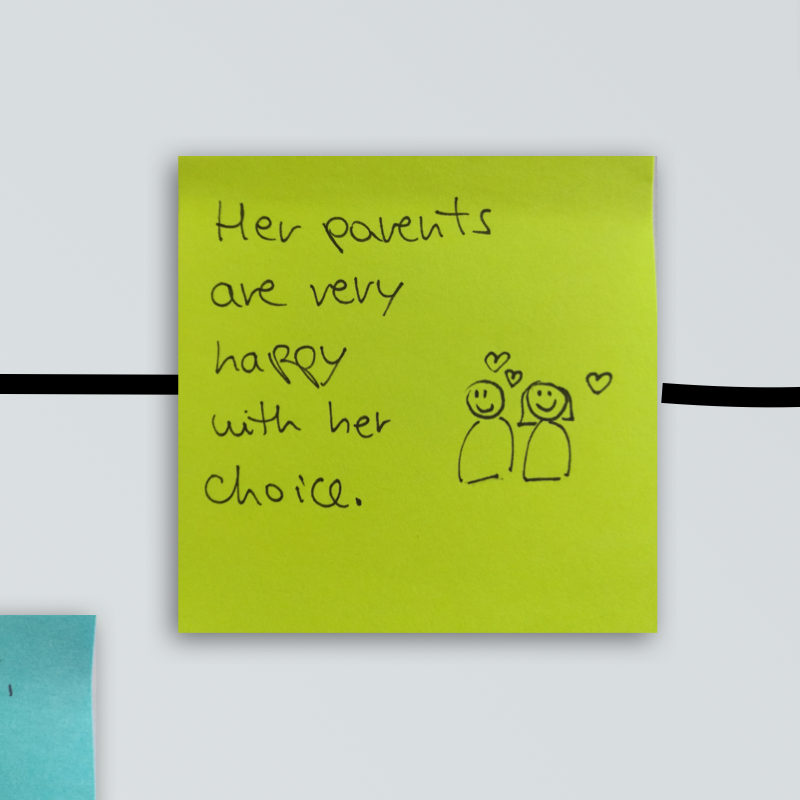 Her parents
are very
happy
with her
choice.